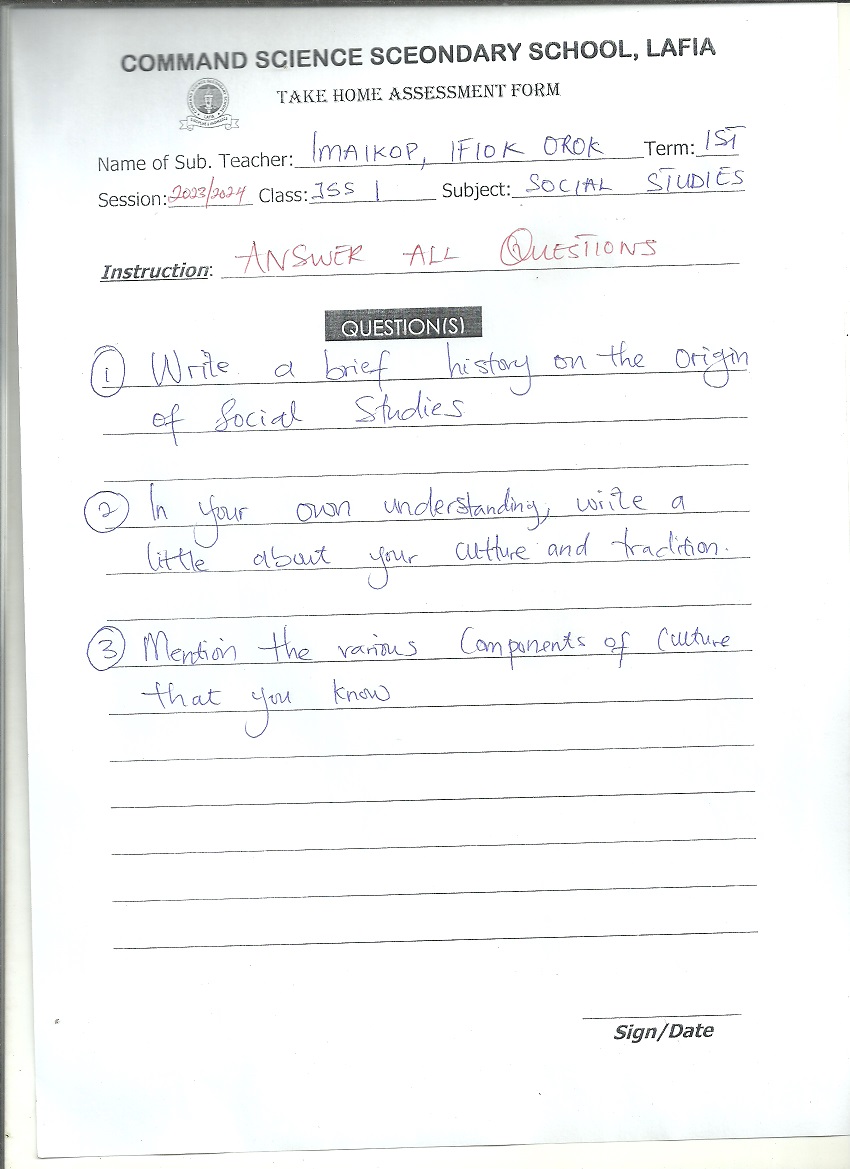 COMMAND SCIENCE SCEONDARY SCHOOL, LAFIA
TAKE HOME ASSESSMENT FORM
Name of Sub. Teacher: IMAIKOP, IFIOK OROK Term: 1ST
Session: 2023/2024 Class: JSS 1 Subject: SOCIAL STUDIES
Instruction: ANSWER ALL QUESTIONS
QUESTION(S)
1 Write a brief history on the origin
of Social Studies
2 In your own understanding, write a
little about your culture and tradition.
3 Mention the various Components of Culture
that you know
Sign/Date